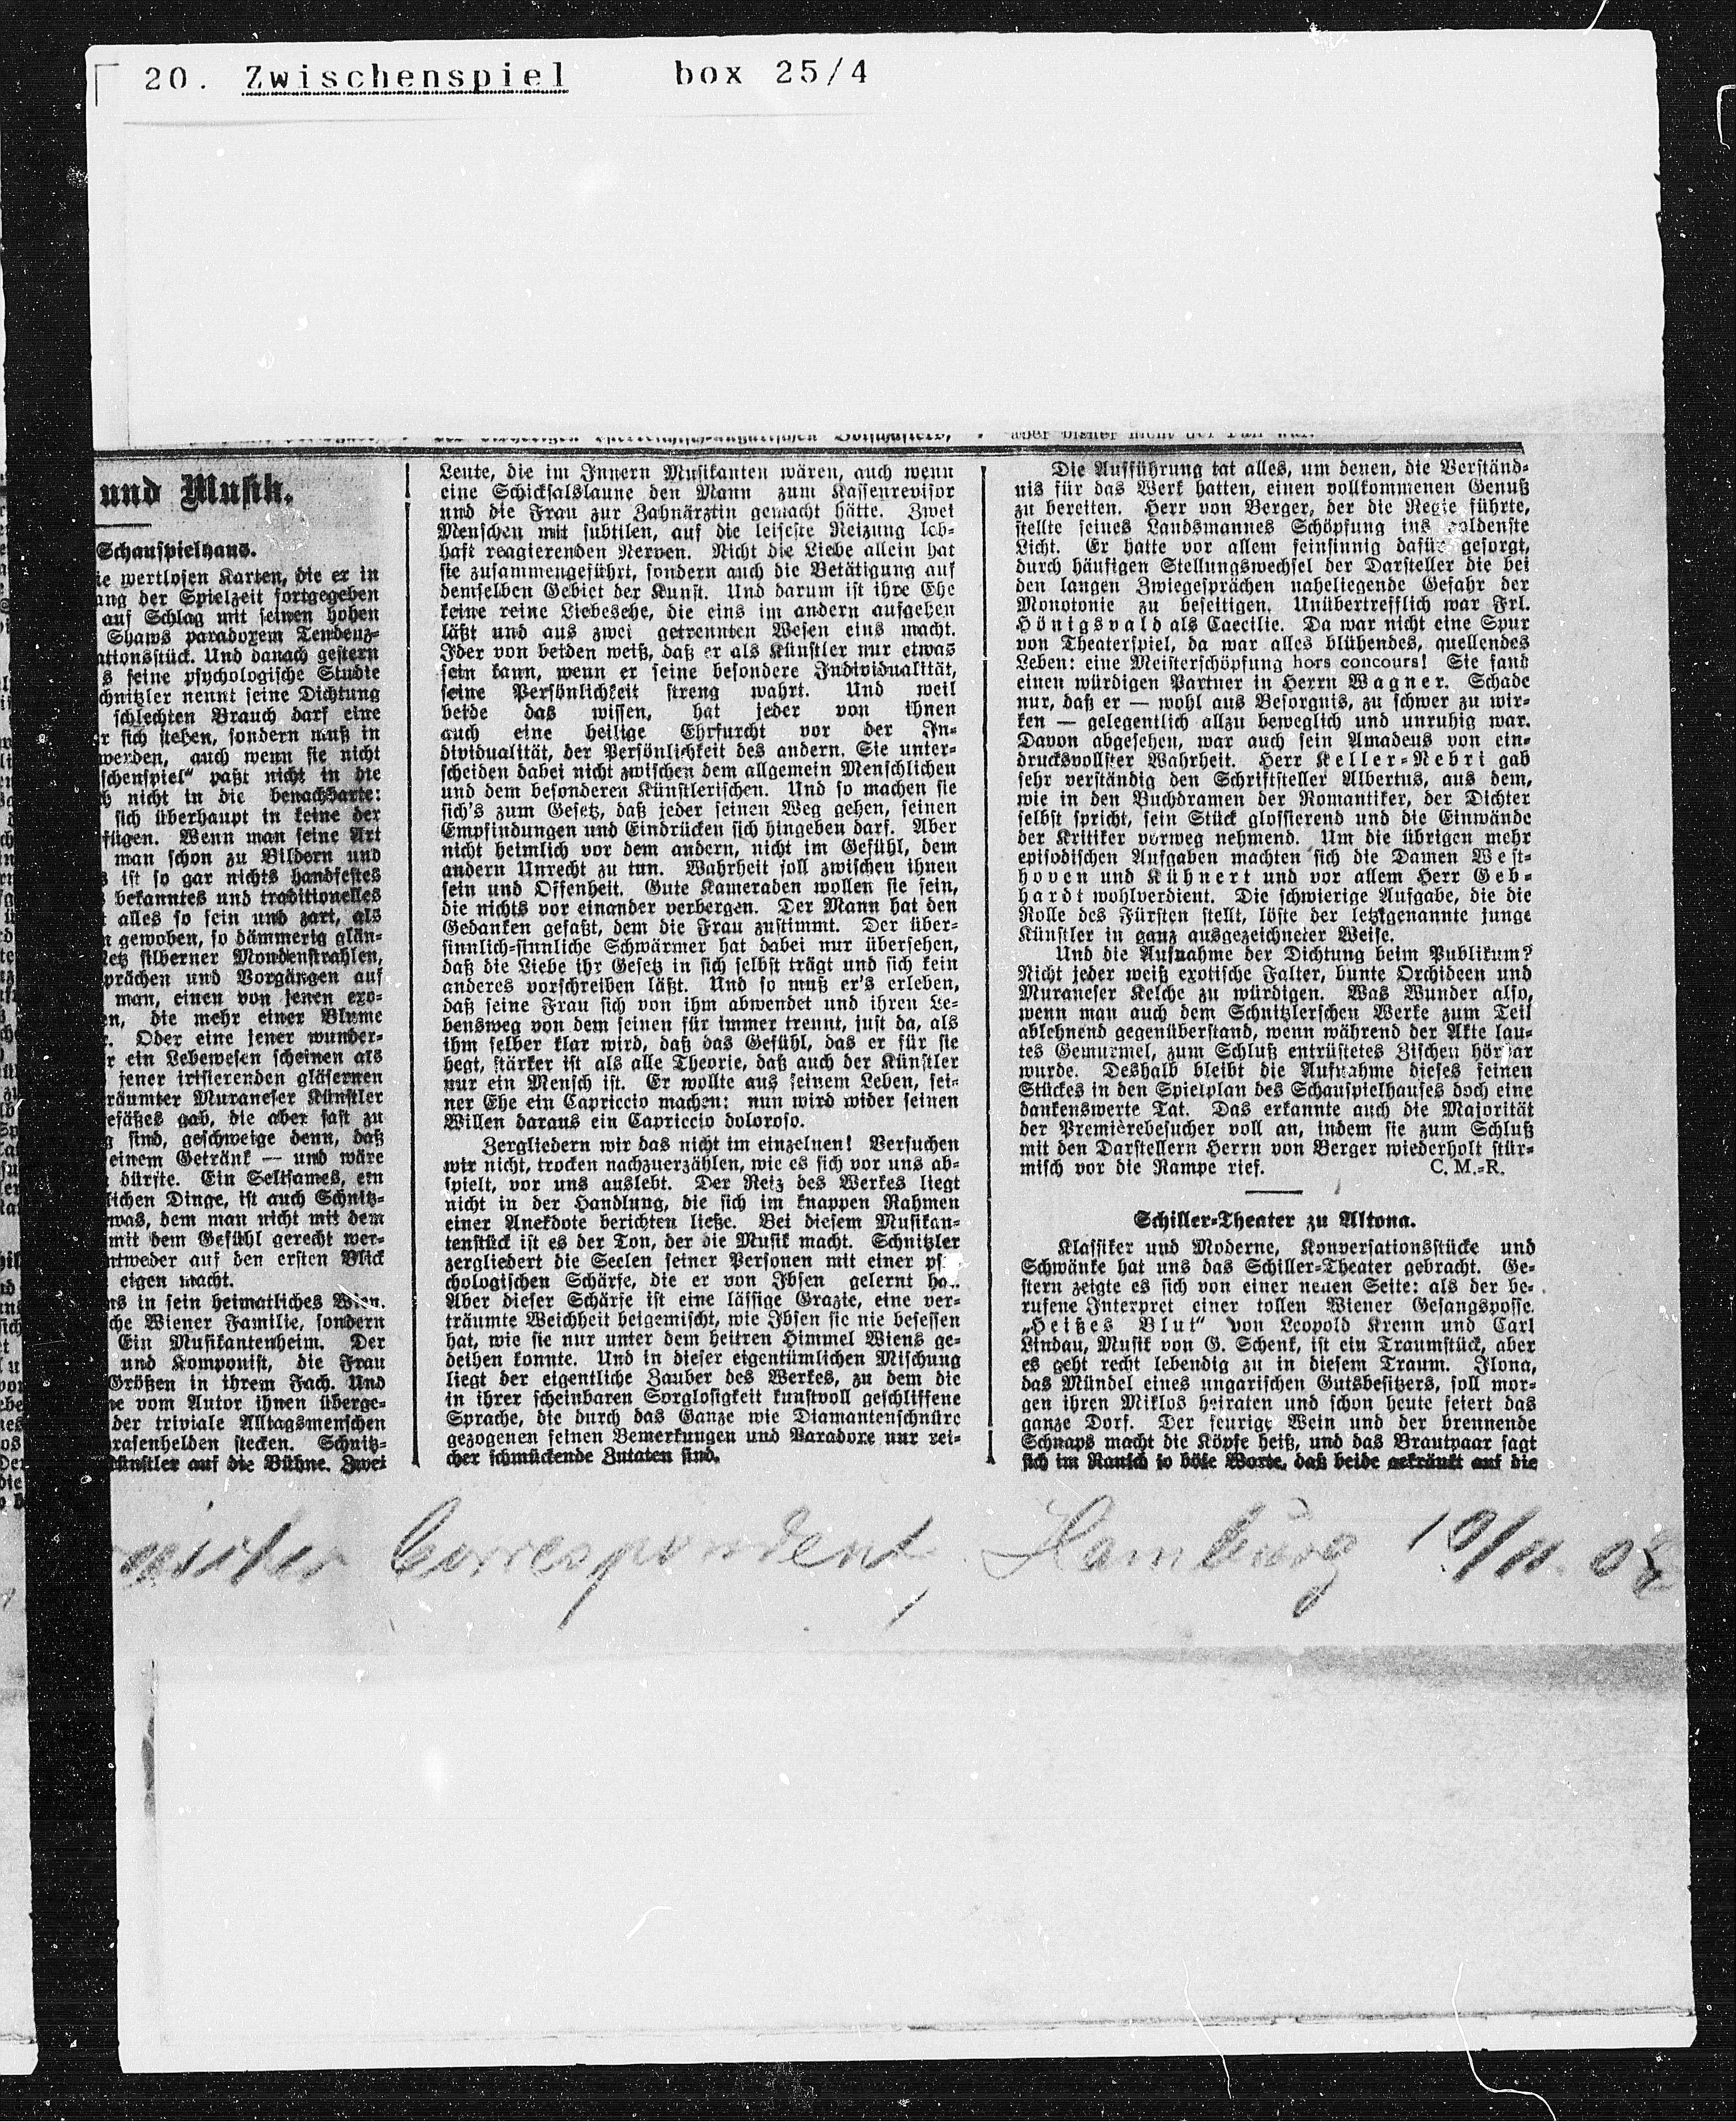 20. Zwischenspiel box 25/4
und Musik.
Schauspielhaus.
ie wertlosen Karten, die er in
ang der Spielzeit fortgegeben
auf Schlag mit seinen hohen
Shaws paradoxem Tendenz-
ationsstück. Und danach gestern
s feine psychologische Studie
chnitzler nennt seine Dichtung
schlechten Brauch darf eine
r sich stehen, sondern muß in
werden, auch wenn sie nicht
schenspiel" paßt nicht in die
h nicht in die benachbarte:
sich überhaupt in keine der
fügen. Wenn man seine Art
man schon zu Bildern und
s ist so gar nichts handfestes
s bekanntes und traditionelles
t alles so fein und zart, als
n gewoben, so dämmerig glän-
Netz silberner Mondenstrahlen,
prächen und Vorgängen auf
man, einen von jenen exo-
en, die mehr einer Blume
r. Oder eine jener wunder-
r ein Lebewesen scheinen als
jener irisierenden gläsernen
räumter Muraneser Künstler
efäßes gab, die aber fast zu
g sind, geschweige denn, daß
einem Getränk — und wäre
dürfte. Ein Seltsames, ein
lichen Dinge, ist auch Schnitz-
was, dem man nicht mit dem
mit dem Gefühl gerecht wer-
ntweder auf den ersten Blick
eigen macht.
ns in sein heimatliches Wien.
che Wiener Familie, sondern
Ein Musikantenheim. Der
und Komponist, die Frau
Größen in ihrem Fach. Und
ne vom Autor ihnen überge-
der triviale Alltagsmenschen
rasenhelden stecken. Schnitz-
Künstler auf die Bühne. Zwei
Leute, die im Innern Musikanten wären, auch wenn
eine Schicksalslaune den Mann zum Kassenrevisor
und die Frau zur Zahnärztin gemacht hätte. Zwei
Menschen mit subtilen, auf die leiseste Reizung leb-
haft reagierenden Nerven. Nicht die Liebe allein hat
sie zusammengeführt, sondern auch die Betätigung auf
demselben Gebiet der Kunst. Und darum ist ihre Ehe
keine reine Liebesehe, die eins im andern aufgehen
läßt und aus zwei getrennten Wesen eins macht.
Jder von beiden weiß, daß er als Künstler nur etwas
sein kann, wenn er seine besondere Individualität,
seine Persönlichkeit streng wahrt. Und weil
beide das wissen, hat jeder von ihnen
auch eine heilige Ehrfurcht vor der In-
dividualität, der Persönlichkeit des andern. Sie unter-
scheiden dabei nicht zwischen dem allgemein Menschlichen
und dem besonderen Künstlerischen. Und so machen sie
sich's zum Gesetz, daß jeder seinen Weg gehen, seinen
Empfindungen und Eindrücken sich hingeben darf. Aber
nicht heimlich vor dem andern, nicht im Gefühl, dem
andern Unrecht zu tun. Wahrheit soll zwischen ihnen
sein und Offenheit. Gute Kameraden wollen sie sein,
die nichts vor einander verbergen. Der Mann hat den
Gedanken gefaßt, dem die Frau zustimmt. Der über-
sinnlich-sinnliche Schwärmer hat dabei nur übersehen,
daß die Liebe ihr Gesetz in sich selbst trägt und sich kein
anderes vorschreiben läßt. Und so muß er's erleben,
daß seine Frau sich von ihm abwendet und ihren Le-
bensweg von dem seinen für immer trennt, just da, als
ihm selber klar wird, daß das Gefühl, das er für sie
hegt, stärker ist als alle Theorie, daß auch der Künstler
nur ein Mensch ist. Er wollte aus seinem Leben, sei-
ner Ehe ein Capriccio machen: nun wird wider seinen
Willen daraus ein Capriccio doloroso.
Zergliedern wir das nicht im einzelnen! Versuchen
wir nicht, trocken nachzuerzählen, wie es sich vor uns ab-
spielt, vor uns auslebt. Der Reiz des Werkes liegt
nicht in der Handlung, die sich im knappen Rahmen
einer Anekdote berichten ließe. Bei diesem Musikan-
tenstück ist es der Ton, der die Musik macht. Schnitzler
zergliedert die Seelen seiner Personen mit einer ps
chologischen Schärfe, die er von Ibsen gelernt ha
Aber dieser Schärfe ist eine lässige Grazie, eine ver-
träumte Weichheit beigemischt, wie Ibsen sie nie besessen
hat, wie sie nur unter dem heitren Himmel Wiens ge-
deihen konnte. Und in dieser eigentümlichen Mischung
liegt der eigentliche Zauber des Werkes, zu dem die
in ihrer scheinbaren Sorglosigkeit kunstvoll geschliffene
Sprache, die durch das Ganze wie Diamantenschnüre
gezogenen feinen Bemerkungen und Paradoxe nur rei-
cher schmückende Zutaten sind.
Die Aufführung tat alles, um denen, die Verständ-
nis für das Werk hatten, einen vollkommenen Genuß
zu bereiten. Herr von Berger, der die Regie führte,
stellte seines Landsmannes Schöpfung ins goldenste
Licht. Er hatte vor allem feinsinnig dafür gesorgt,
durch häufigen Stellungswechsel der Darsteller die bei
den langen Zwiegesprächen naheliegende Gefahr der
Monotonie zu beseitigen. Unübertrefflich war Frl.
Hönigsvald als Caecilie. Da war nicht eine Spur
von Theaterspiel, da war alles blühendes, quellendes
Leben: eine Meisterschöpfung hors concours! Sie fand
einen würdigen Partner in Herrn Wagner. Schade
nur, daß er — wohl aus Besorgnis, zu schwer zu wir-
ken — gelegentlich allzu beweglich und unruhig war.
Davon abgesehen, war auch sein Amadeus von ein-
drucksvollster Wahrheit. Herr Keller-Nebri gab
sehr verständig den Schriftsteller Albertus, aus dem,
wie in den Buchdramen der Romantiker, der Dichter
selbst spricht, sein Stück glossierend und die Einwände
der Kritiker vorweg nehmend. Um die übrigen mehr
episodischen Aufgaben machten sich die Damen West-
hoven und Kühnert und vor allem Herr Geb-
hardt wohlverdient. Die schwierige Aufgabe, die die
Rolle des Fürsten stellt, löste der letztgenannte junge
Künstler in ganz ausgezeichneter Weise.
Und die Aufnahme der Dichtung beim Publikum?
Nicht jeder weiß exotische Falter, bunte Orchideen und
Muraneser Kelche zu würdigen. Was Wunder also,
wenn man auch dem Schnitzlerschen Werke zum Teil
ablehnend gegenüberstand, wenn während der Akte lau-
tes Gemurmel, zum Schluß entrüstetes Zischen hörbar
wurde. Deshalb bleibt die Aufnahme dieses feinen
Stückes in den Spielplan des Schauspielhauses doch eine
dankenswerte Tat. Das erkannte auch die Majorität
der Premièrebesucher voll an, indem sie zum Schluß
mit den Darstellern Herrn von Berger wiederholt stür-
misch vor die Rampe rief. C. M.-R.
Schiller-Theater zu Altona.
Klassiker und Moderne, Konversationsstücke und
Schwänke hat uns das Schiller-Theater gebracht. Ge-
stern zeigte es sich von einer neuen Seite: als der be-
rufene Interpret einer tollen Wiener Gesangsposse.
„Heißes Blut" von Leopold Krenn und Carl
Lindau, Musik von G. Schenk, ist ein Traumstück, aber
es geht recht lebendig zu in diesem Traum. Ilona,
das Mündel eines ungarischen Gutsbesitzers, soll mor-
gen ihren Miklos heiraten und schon heute feiert das
ganze Dorf. Der feurige Wein und der brennende
Schnaps macht die Köpfe heiß, und das Brautpaar sagt
sich im Rausch so böse Worte, daß beide gekränkt auf die
Correspondent, Hamburg 19/11.